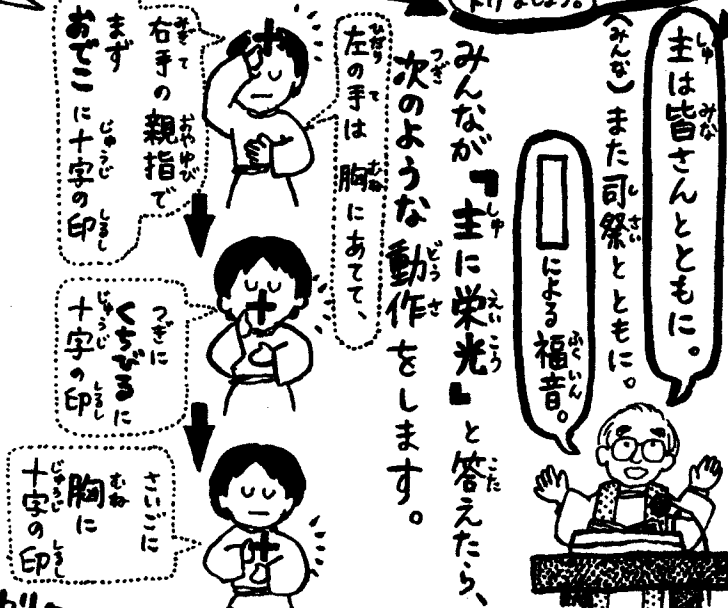 主は皆さんとともに。
(みんな)また司祭とともに。
による福音。
みんなが『主に栄光』と答えたら、
次のような動作をします。
左の手は胸にあてて、
右手の親指で
まず
おでこに十字の印
つぎに
くちびるに
十字の印
さいごに
胸に
十字の印